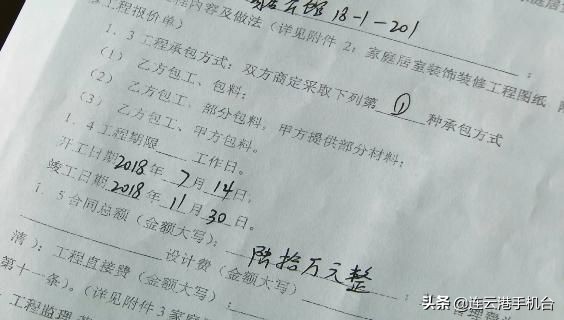 程内容及做法(详见附件2:家庭居室装饰装修工程图纸
18-1-201
工程报价单)
1.3工程承包方式:双方商定采取下列第①种承包方式
(1) 乙方包工、包料;
(2) 乙方包工、部分包料,甲方提供部分材料;
(3) 乙方包工、甲方包料。
1.4工程期限____工作日。
开工日期2018年7月14日。
竣工日期2018年11月30日。
1.5合同总额(金额大写):
陆拾万元整
设计费(金额大写)
清);工程直接费(金额大写):
第十一条)。(详见附件3家庭
工程监理
头条@连云港手机台